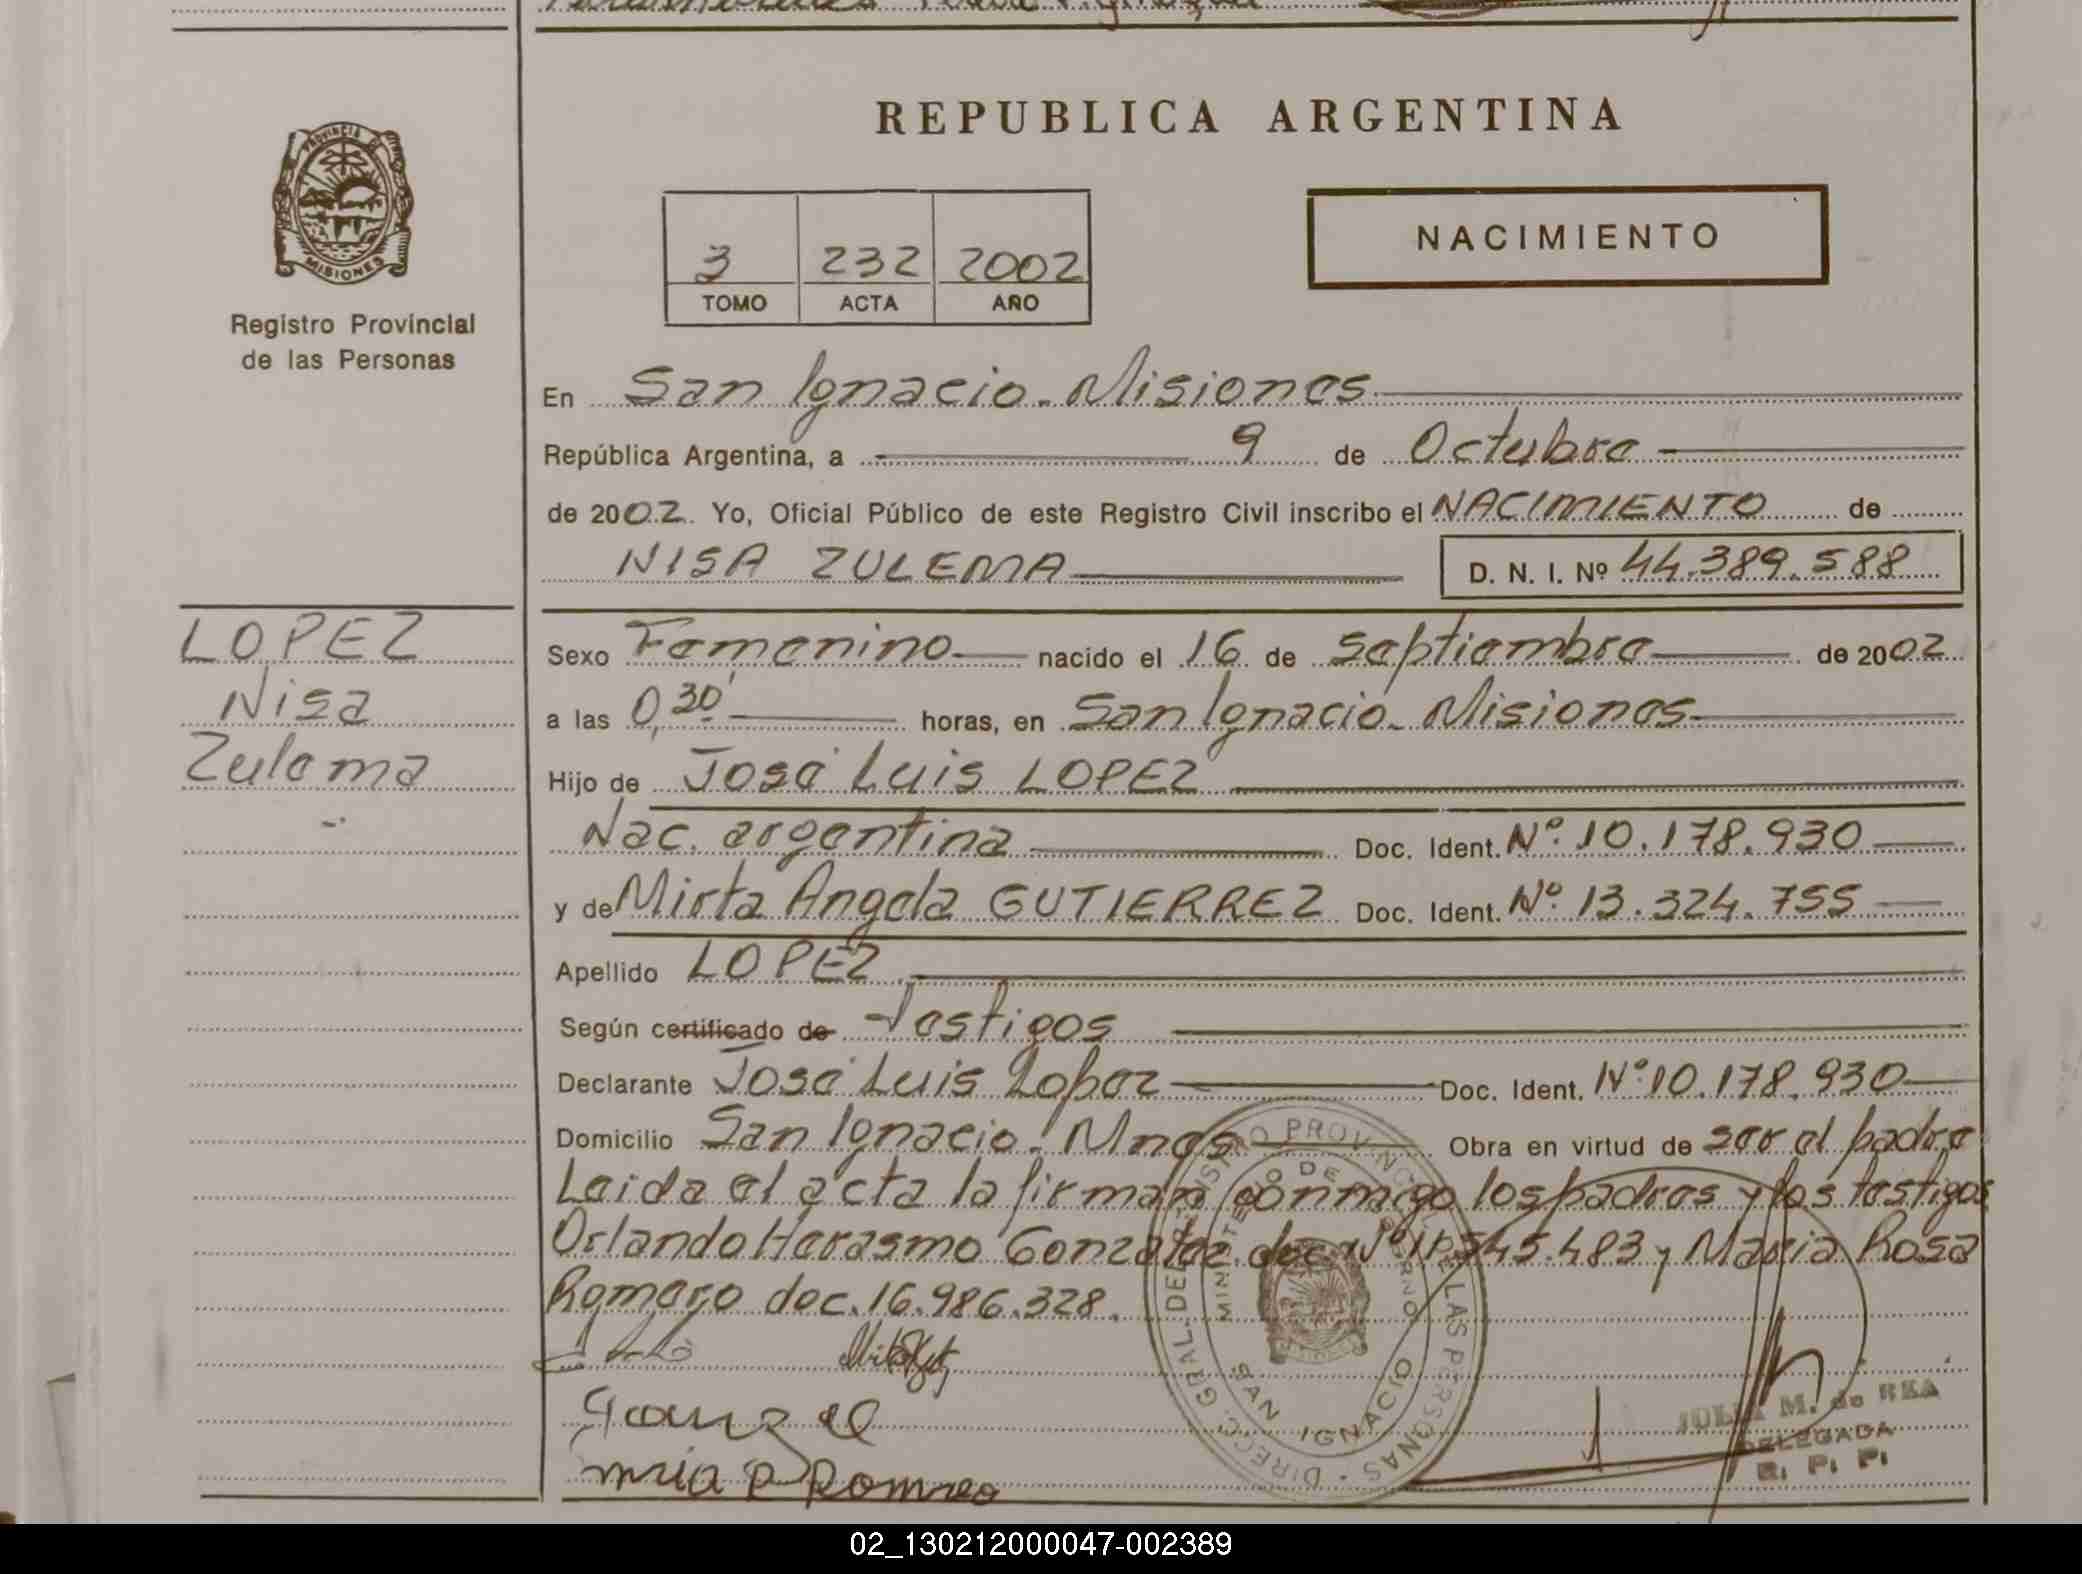 REPUBLICA ARGENTINA
PROVINCIA DE
MISIONES
Registro Provincial
de las Personas
NACIMIENTO
3 232 2002
TOMO ACTA AÑO
En San Ignacio - Misiones
República Argentina, a 9 de Octubre
de 2002. Yo, Oficial Público de este Registro Civil inscribo el NACIMIENTO de
NISA ZULEMA D. N. I. Nº 44.389.588
LOPEZ
Nisa
Zulema
Sexo Femenino nacido el 16 de septiembre de 2002
a las 0,30' horas, en San Ignacio - Misiones
Hijo de José Luis LOPEZ
Nac. argentina Doc. Ident. Nº 10.178.930
y de Mirta Angela GUTIERREZ Doc. Ident. Nº 13.324.755
Apellido LOPEZ
Según certificado de Testigos
Declarante José Luis Lopez Doc. Ident. Nº 10.178.930
Domicilio San Ignacio - Mnes Obra en virtud de ser el padre
Leida el acta la firman conmigo los padres y los testigos
Orlando Herasmo Gonzalez doc. Nº 11.545.483 y Maria Rosa
Romero doc. 16.986.328.
DIRECC. GRAL. DEL REGISTRO PROVINCIAL DE LAS PERSONAS
MINISTERIO DE GOBIERNO
SAN IGNACIO
M. de REA
DELEGADA
R. P. P.
02_130212000047-002389